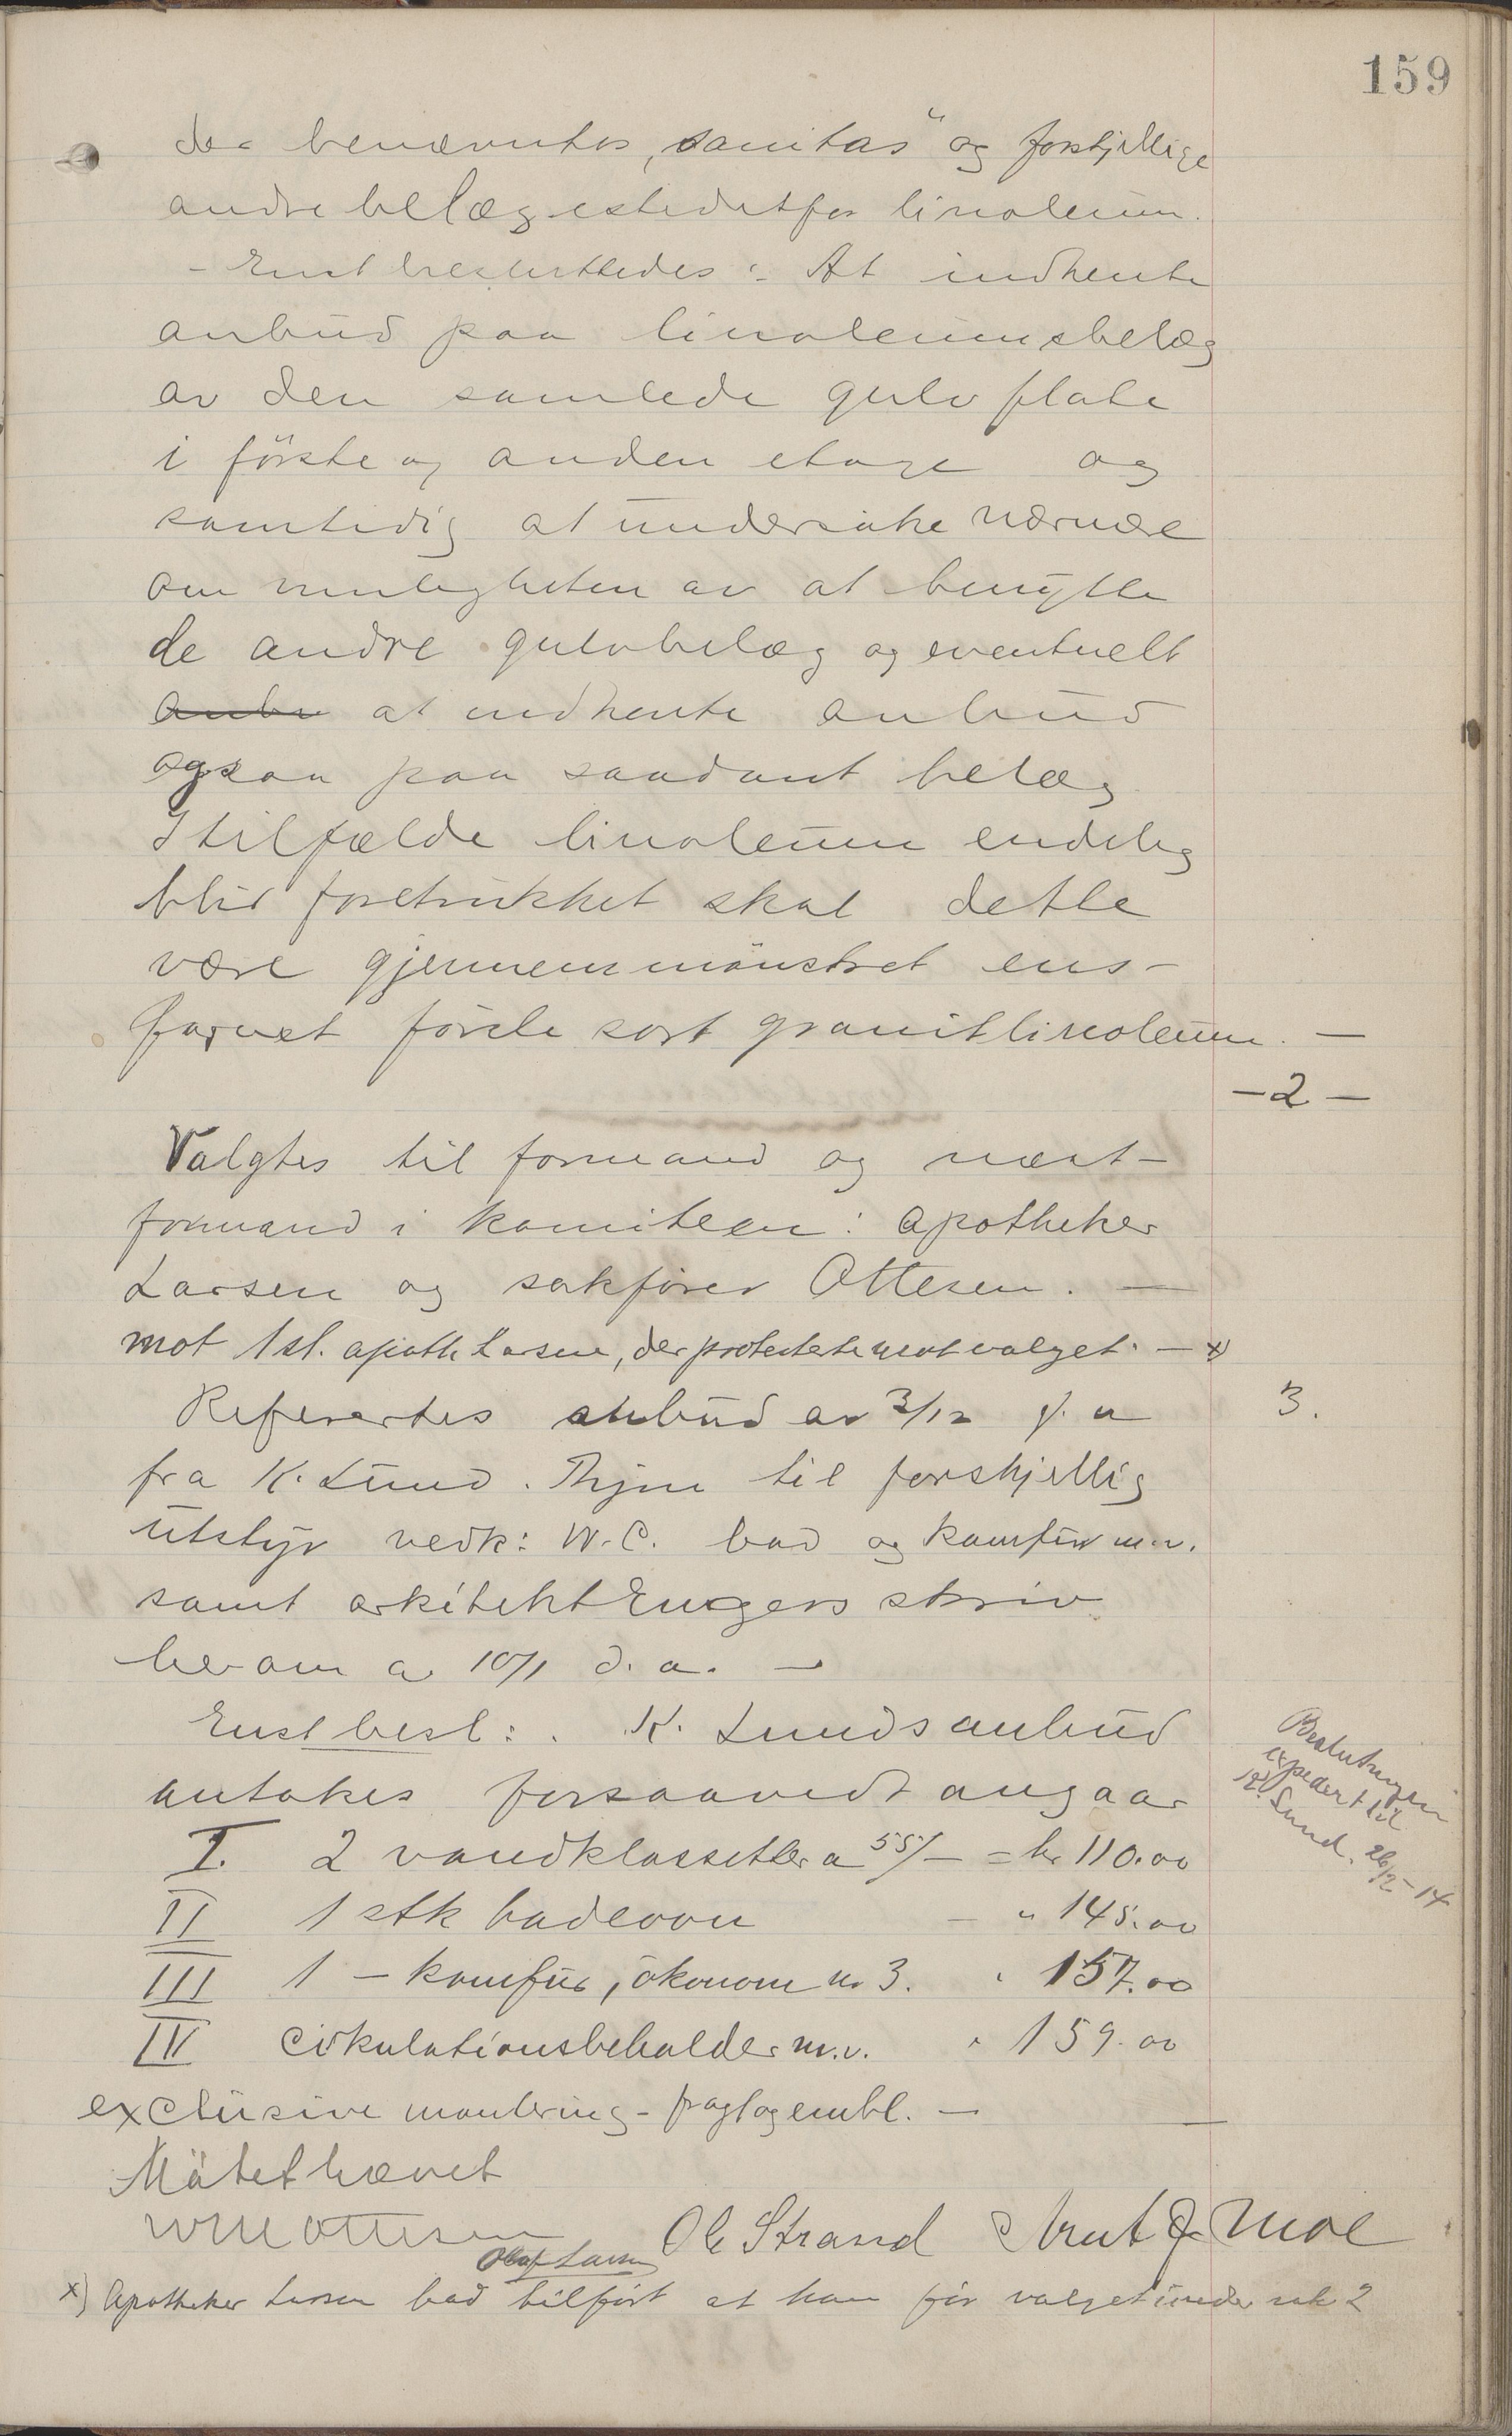 159
der benævntes „Sanitas" og forskjellige
andre belæg istedetfor linoleum.
- Enst besluttedes: At indhente
anbud paa linoleumsbelæg
av den samlede gulvflate
i første og anden etage og
samtidig at undersøke nærmere
om muligheten av at benytte
de andre gulvbelæg og eventuelt
anbu at indhente anbud
ogsaa paa saadant belæg
I tilfælde linoleum endelig
blir foretrukket skal dette
være gjennemmönstret ens-
farvet förste sort granitlinoleum. —
- 2 -
Valgtes til formand og næst-
formand i komiteen: Apotheker
Larsen og sakfører Ottesen. —
mot 1 st. apoth Larsen, der protesterte mot valget. — x)
3.
Refertes anbud av 3/12 f. a
fra K. Lund. til forskjellig
utstyr vedk: W.C. bad og komfur m.v.
samt arkitekt skriv
herom av 10/1 d. a. —
Enst besl: K. Lunds anbud
antakes forsaavidt angaar
Beslutningen
expedert til
K. Lund. 26/2 - 14
I. 2 vandklossetter a 55/- = kr 110.00
II 1 stk badeovn — " 145.00
III 1 - komfur, økonom nr 3. " 157.00
IV Cirkulationsbeholder m.v. " 159.00
exclusive montering - fragt og embl. —
Mötet hævet
Ottesen Ole Strand Knut J. Moe
Olaf Larsen
x) Apotheker Larsen bad tilført at han før valget under sak 2